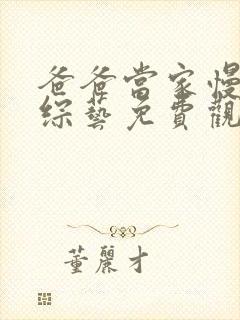 爸爸當家慢
綜藝免費觀
董麗才